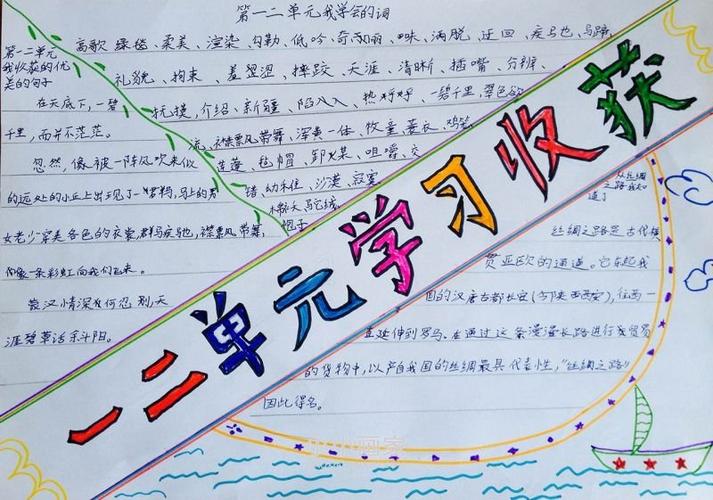 第一二单元我学会的词
高歌 绿毯、柔美、渲染、勾勒、低吟、奇丽、回味、洒脱、迂回、疾马也、马蹄
礼貌、拘束、羞涩、摔跤、天涯、清晰、插嘴、分辨、
打扰、介绍、新疆、陷入、热乎乎、一碧千里、翠色欲
流、襟飘带舞、浑黄一体、牧童、蓑衣、鸡笼
莲蓬、毡帽、卸煤、咀嚼、交
错、幼稚、沙漠、寂寞
帽子
第一二单元
我收获的优
美的句子
在天底下，一碧
千里，而并不茫茫。
忽然，像被一阵风吹来似
的远处的小丘上出现了一群马，马上的男
女老少穿着各色的衣裳，群马疾驰，襟飘带舞，
像一条彩虹向我们飞来。
蒙汉情深何忍别，天
涯碧草话斜阳。
一二单元学习收获
从丝绸
之路我知
道了
丝绸之路是古代横
贯亚欧的通道。它东起我
国的汉唐古都长安(今陕西西安)，往西一
直延伸到罗马。在通过这条漫漫长路进行贸易
的货物中，以产自我国的丝绸最具代表性，"丝绸之路"
因此得名。